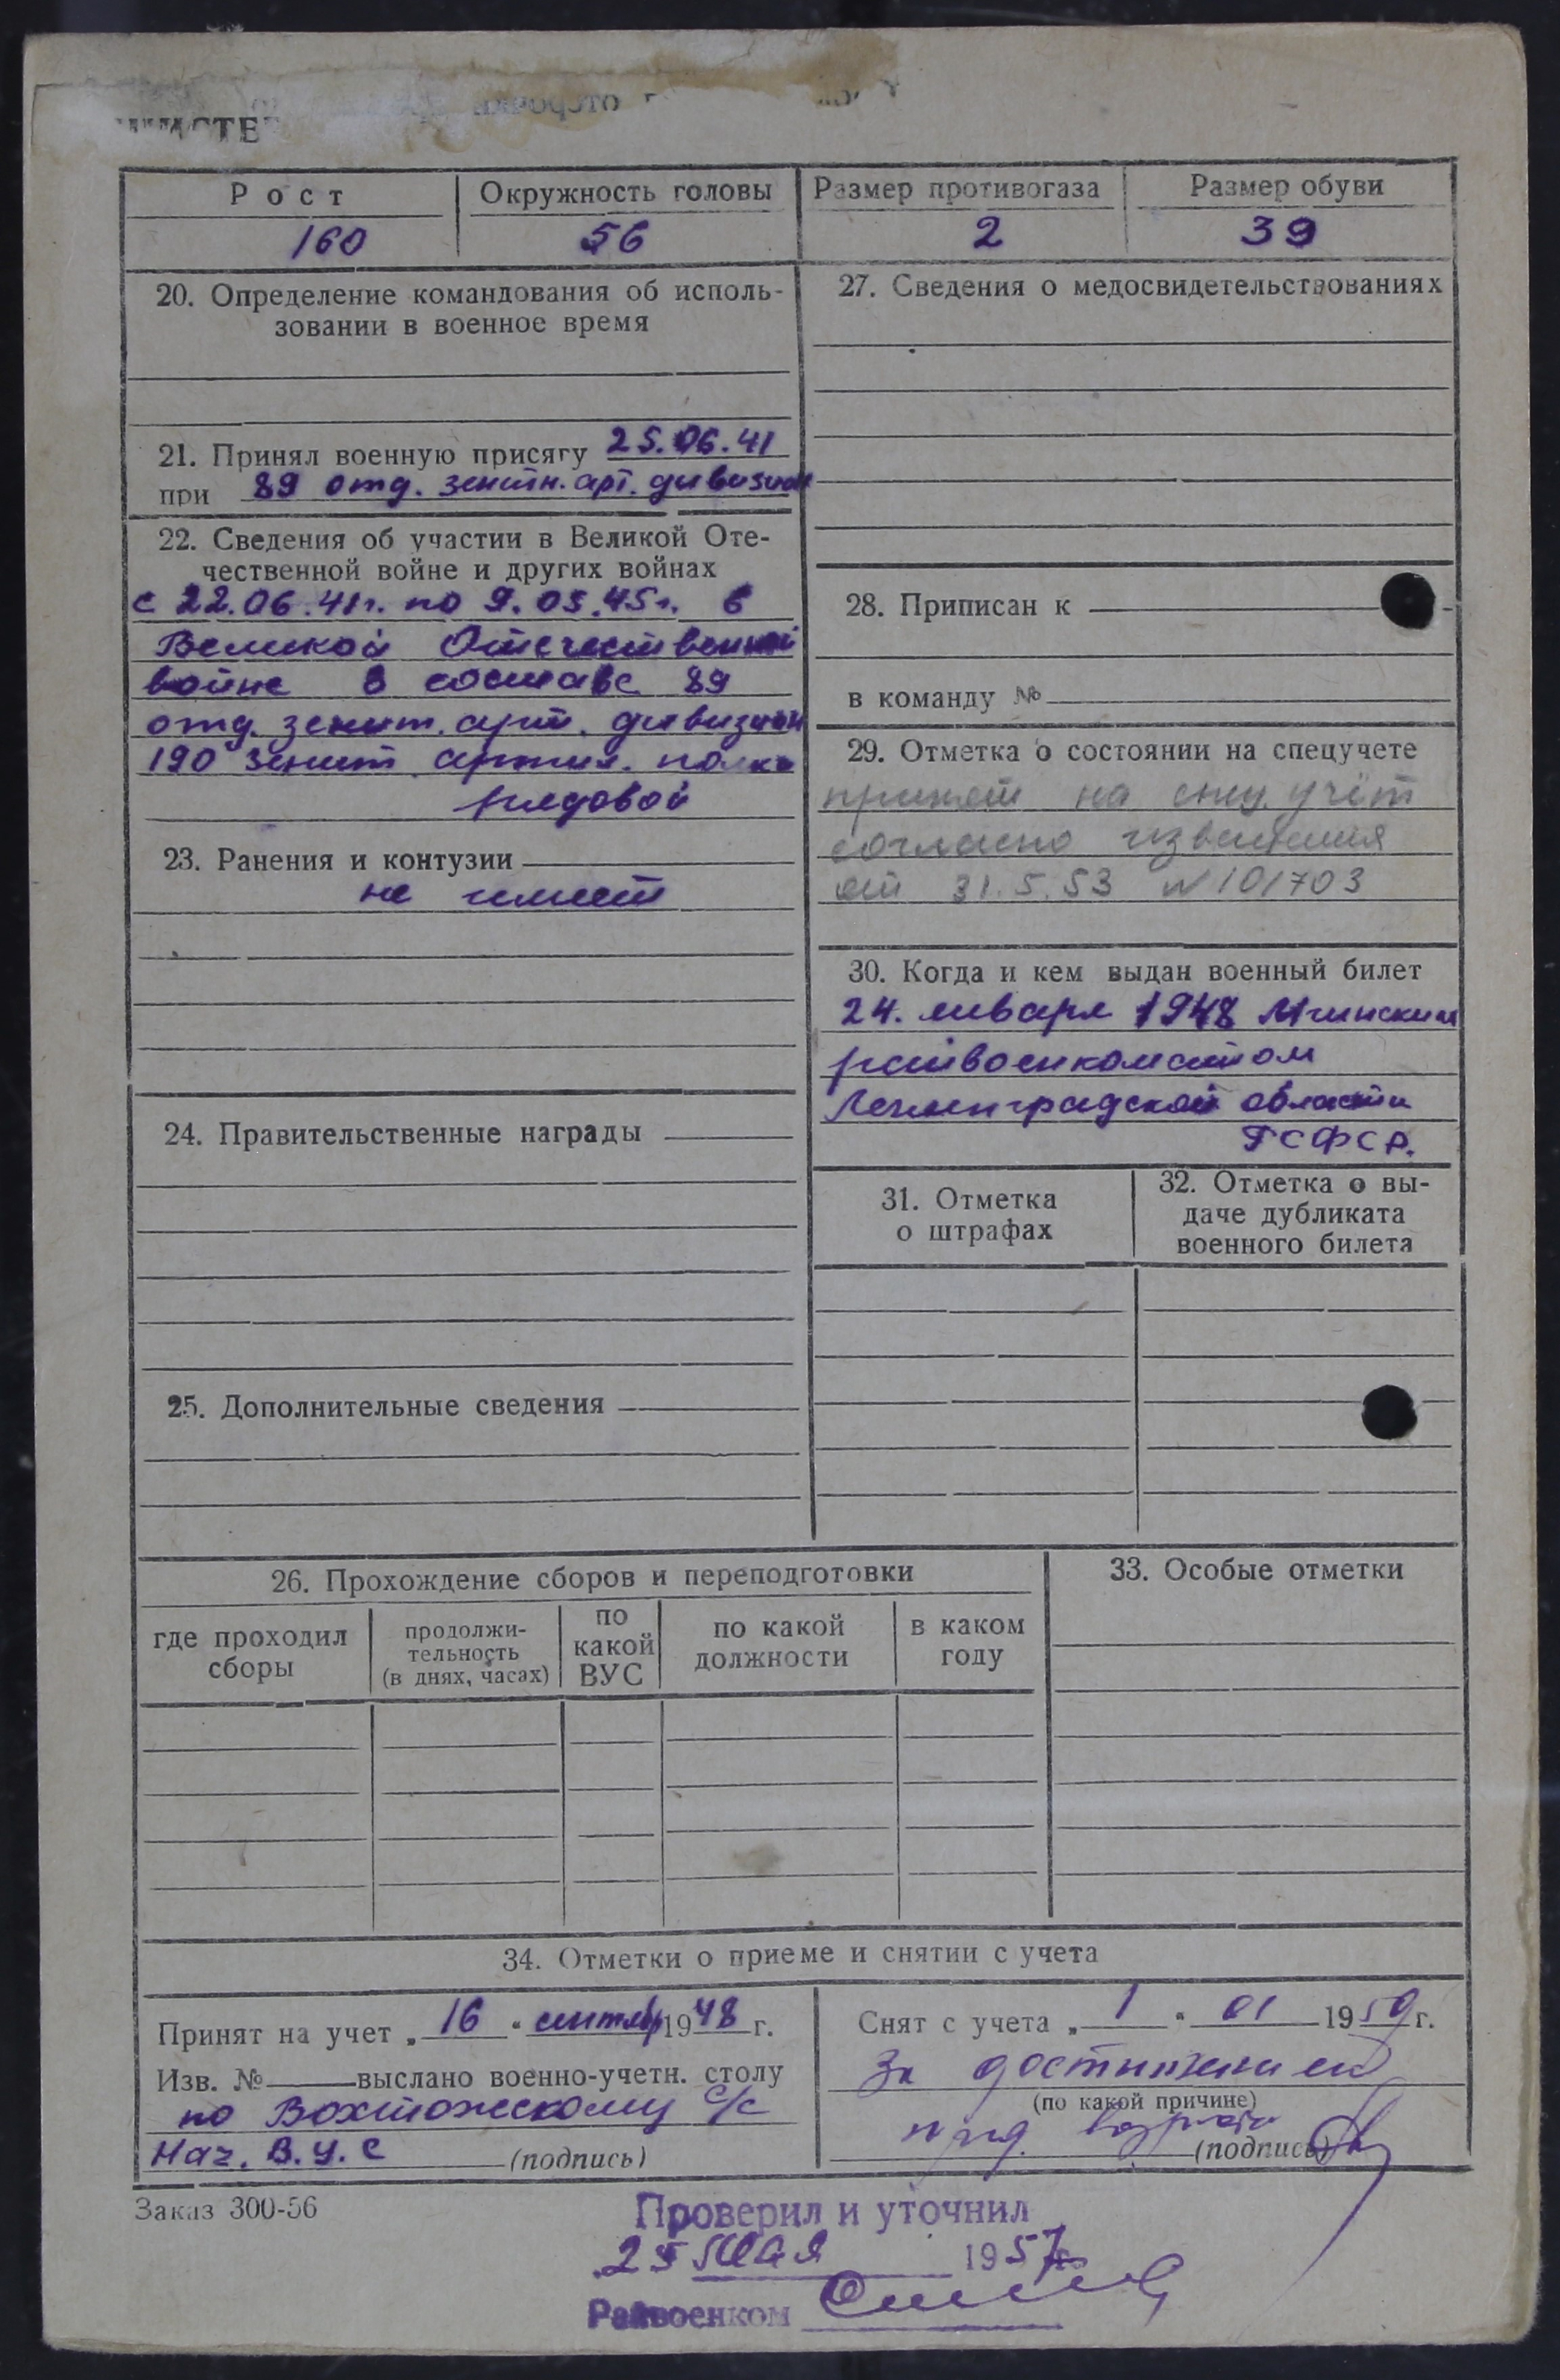 Рост
Окружность головы
Размер противогаза
Размер обуви
160
56
2
39
20. Определение командования об исполь-
зовании в военное время
21. Принял военную присягу 25.06.41
при 89 отд. зенитн. арт. дивизион
22. Сведения об участии в Великой Оте-
чественной войне и других войнах
с 22.06.41г. по 9.05.45г. в
Великой Отечественной
войне в составе 89
отд. зенит. арт. дивизион
190 зенит. артил. полка
рядовой
23. Ранения и контузии
не имеет
24. Правительственные награды
25. Дополнительные сведения
27. Сведения о медосвидетельствованиях
28. Приписан к
в команду №
29. Отметка о состоянии на спецучете
принят на спец. учёт
согласно извещения
от 31.5.53 N 101703
30. Когда и кем выдан военный билет
24. января 1948 Мгинским
райвоенкоматом
Ленинградской области
РСФСР.
31. Отметка
о штрафах
32. Отметка о вы-
даче дубликата
военного билета
26. Прохождение сборов и переподготовки
где проходил
сборы
продолжи-
тельность
(в днях, часах)
по
какой
ВУС
по какой
должности
в каком
году
33. Особые отметки
34. Отметки о приеме и снятии с учета
Принят на учет „ 16 “ сентябр 1948 г.
Изв. № выслано военно-учетн. столу
по Вохтожескому с/с
Нач. В.У.С (подпись)
Снят с учета „ 1 “ 01 1959 г.
За достижением
(по какой причине)
пред. возраста (подпись)
Заказ 300-56
Проверил и уточнил
25 мая 1957г.
Райвоенком